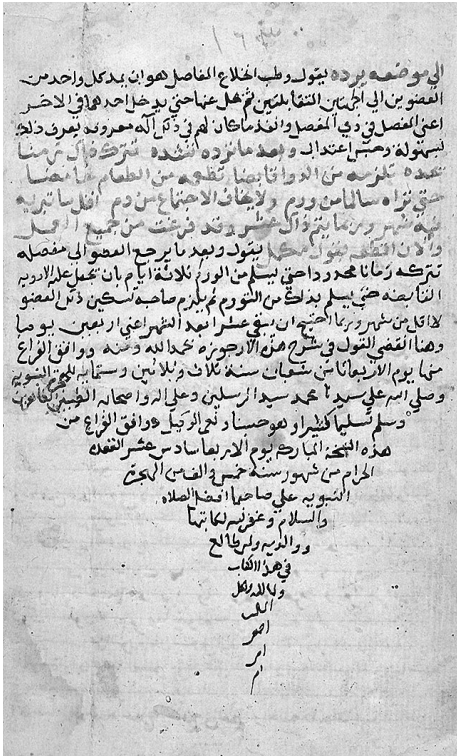 الى موضعه برده يقول وطب انخلاع المفاصل هو ان يمد كل واحد من
العضوين الى الجهتين المتقابلتين ثم هل عنها حتى يدخل احدهما في الاخر
اعنى المفصل في ذي المفصل والقد ما كان لهم في ذلك آلة معروفة يعرف ذلك
بسهولة وحسن اعتدال وبعد ما ترده تشده تتركه زمنا
تغده تلزمه من الدوا قابضا تطعمه من الطعام حامضا
حتى تراه سالما من ورم ولا يخاف الاجتماع من دم اقل ما تبريه
فيه شهر وربما يتر ذاك عشر وقد فرغت من جميع العمل
والان اقطعه بقول مكمل يقول وبعد ما يرجع العضو الى مفصله
تتركه زمانا محدودا حتى يسلم من الورم ثلاثة ايام بان تجعل عليه الادوية
القابضه حتى يسلم بذلك من التورم ثم يلزم صاحبه تسكين ذلك العضو
لا اقل من شهر وربما احتيج ان يبقى عشرا بعد الشهر اعنى اربعين يوما
وهنا انقضى القول في شرح هذه الارجوزة بحمد الله ومنه ووافق الفراغ
منها يوم الاربعا من شعبان سنة ثلاث وثلاثين وستمايه للهجرة النبوية
وصلى الله على سيدنا محمد سيد المرسلين وعلى اله واصحابه الطيبين الطاهرين
وسلم تسليما كثيرا وهو حسبنا ونعم الوكيل ووافق الفراغ من
هذه النسخة المباركه يوم الاربعا سادس عشر القعده
الحرام من شهور سنة خمس والف من الهجرة
النبويه على صاحبها افضل الصلاه
والسلام وغفر الله لكاتبها
ووالديه ولمن طالع
في هذا الكتاب
ولمالكه ولكل
المسلمين